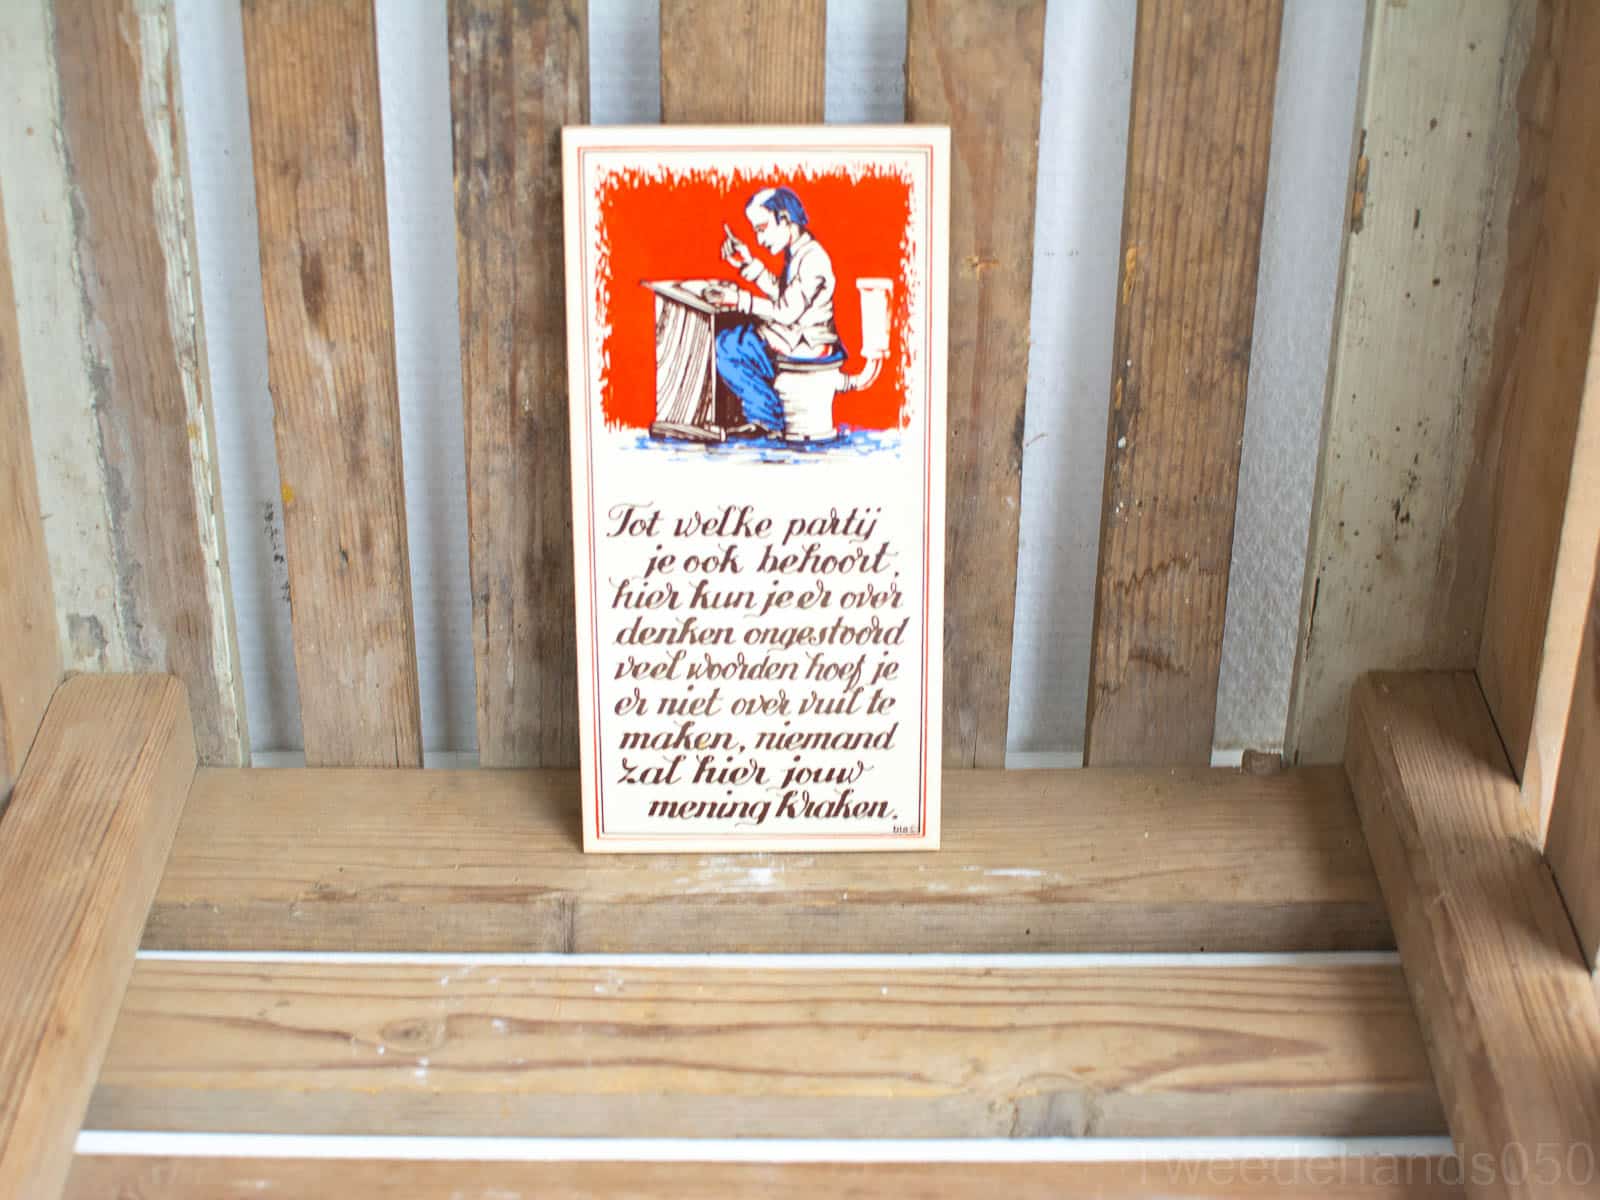 Tot welke partij
je ook behoort,
hier kun je er over
denken ongestoord
veel woorden hoef je
er niet over vuil te
maken, niemand
zal hier jouw
mening kraken.
Tweedehands050